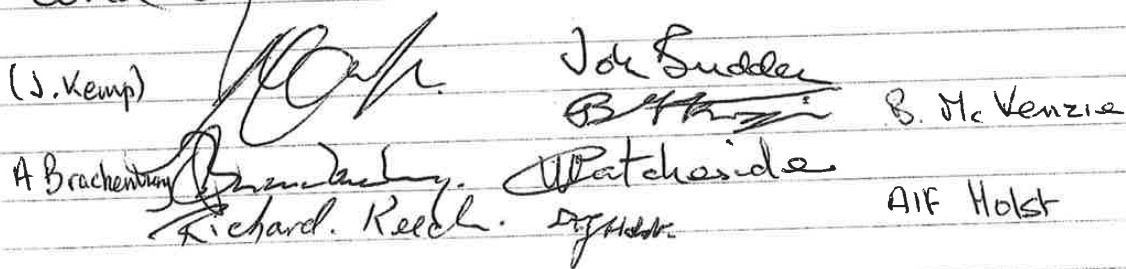 (J. Kemp)
Jon Budden
B. McKenzie
A Brackenbury
Catcheside
Richard. Keech.
Alf Holst